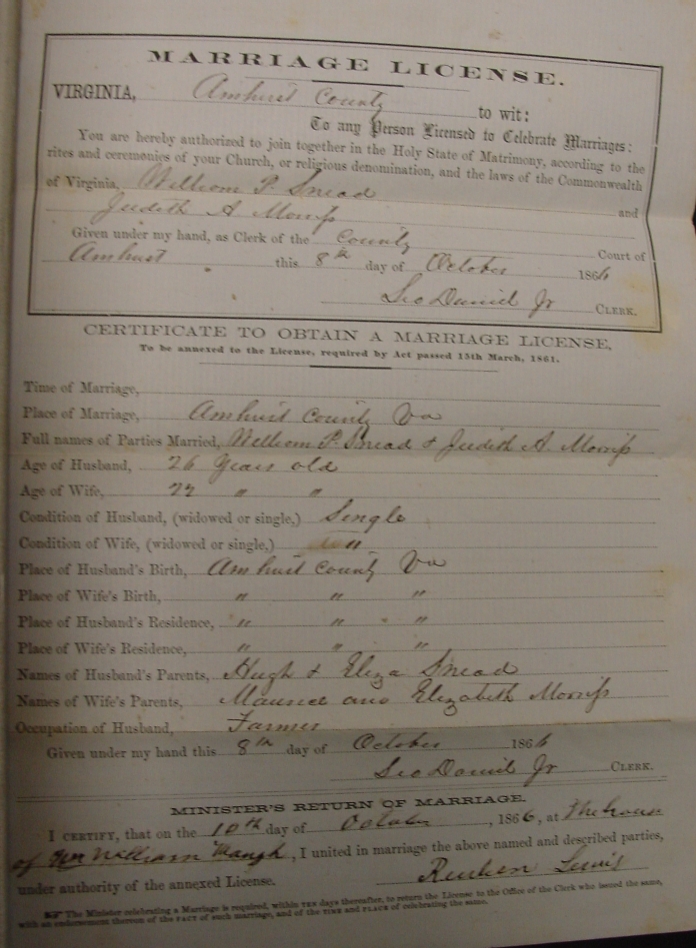 MARRIAGE LICENSE.
VIRGINIA, Amhurst County to wit:
To any Person Licensed to Celebrate Marriages:
You are hereby authorized to join together in the Holy State of Matrimony, according to the
rites and ceremonies of your Church, or religious denomination, and the laws of the Commonwealth
of Virginia, William P. Snead
and
Judith A. Morriss
Given under my hand, as Clerk of the County Court of
Amhurst this 8th day of October 1866
Geo Daniel Jr CLERK.
CERTIFICATE TO OBTAIN A MARRIAGE LICENSE,
To be annexed to the License, required by Act passed 15th March, 1861.
Time of Marriage,
Place of Marriage, Amhurst County Va
Full names of Parties Married, William P. Snead & Judith A. Morriss
Age of Husband, 26 Years old
Age of Wife, 22 " "
Condition of Husband, (widowed or single,) Single
Condition of Wife, (widowed or single,) "
Place of Husband's Birth, Amhurst County Va
Place of Wife's Birth, " " "
Place of Husband's Residence, " " "
Place of Wife's Residence, " " "
Names of Husband's Parents, Hugh & Eliza Snead
Names of Wife's Parents, Maurice and Elizabeth Morriss
Occupation of Husband, Farmer
Given under my hand this 8th day of October 1866
Geo Daniel Jr CLERK.
MINISTER'S RETURN OF MARRIAGE.
I CERTIFY, that on the 10th day of October, 1866, at the house
of William, I united in marriage the above named and described parties,
under authority of the annexed License. Reuben Lewis
☞ The Minister celebrating a Marriage is required, within TEN days thereafter, to return the License to the Office of the Clerk who issued the same,
with an endorsement thereon of the FACT of such marriage, and of the TIME and PLACE of celebrating the same.